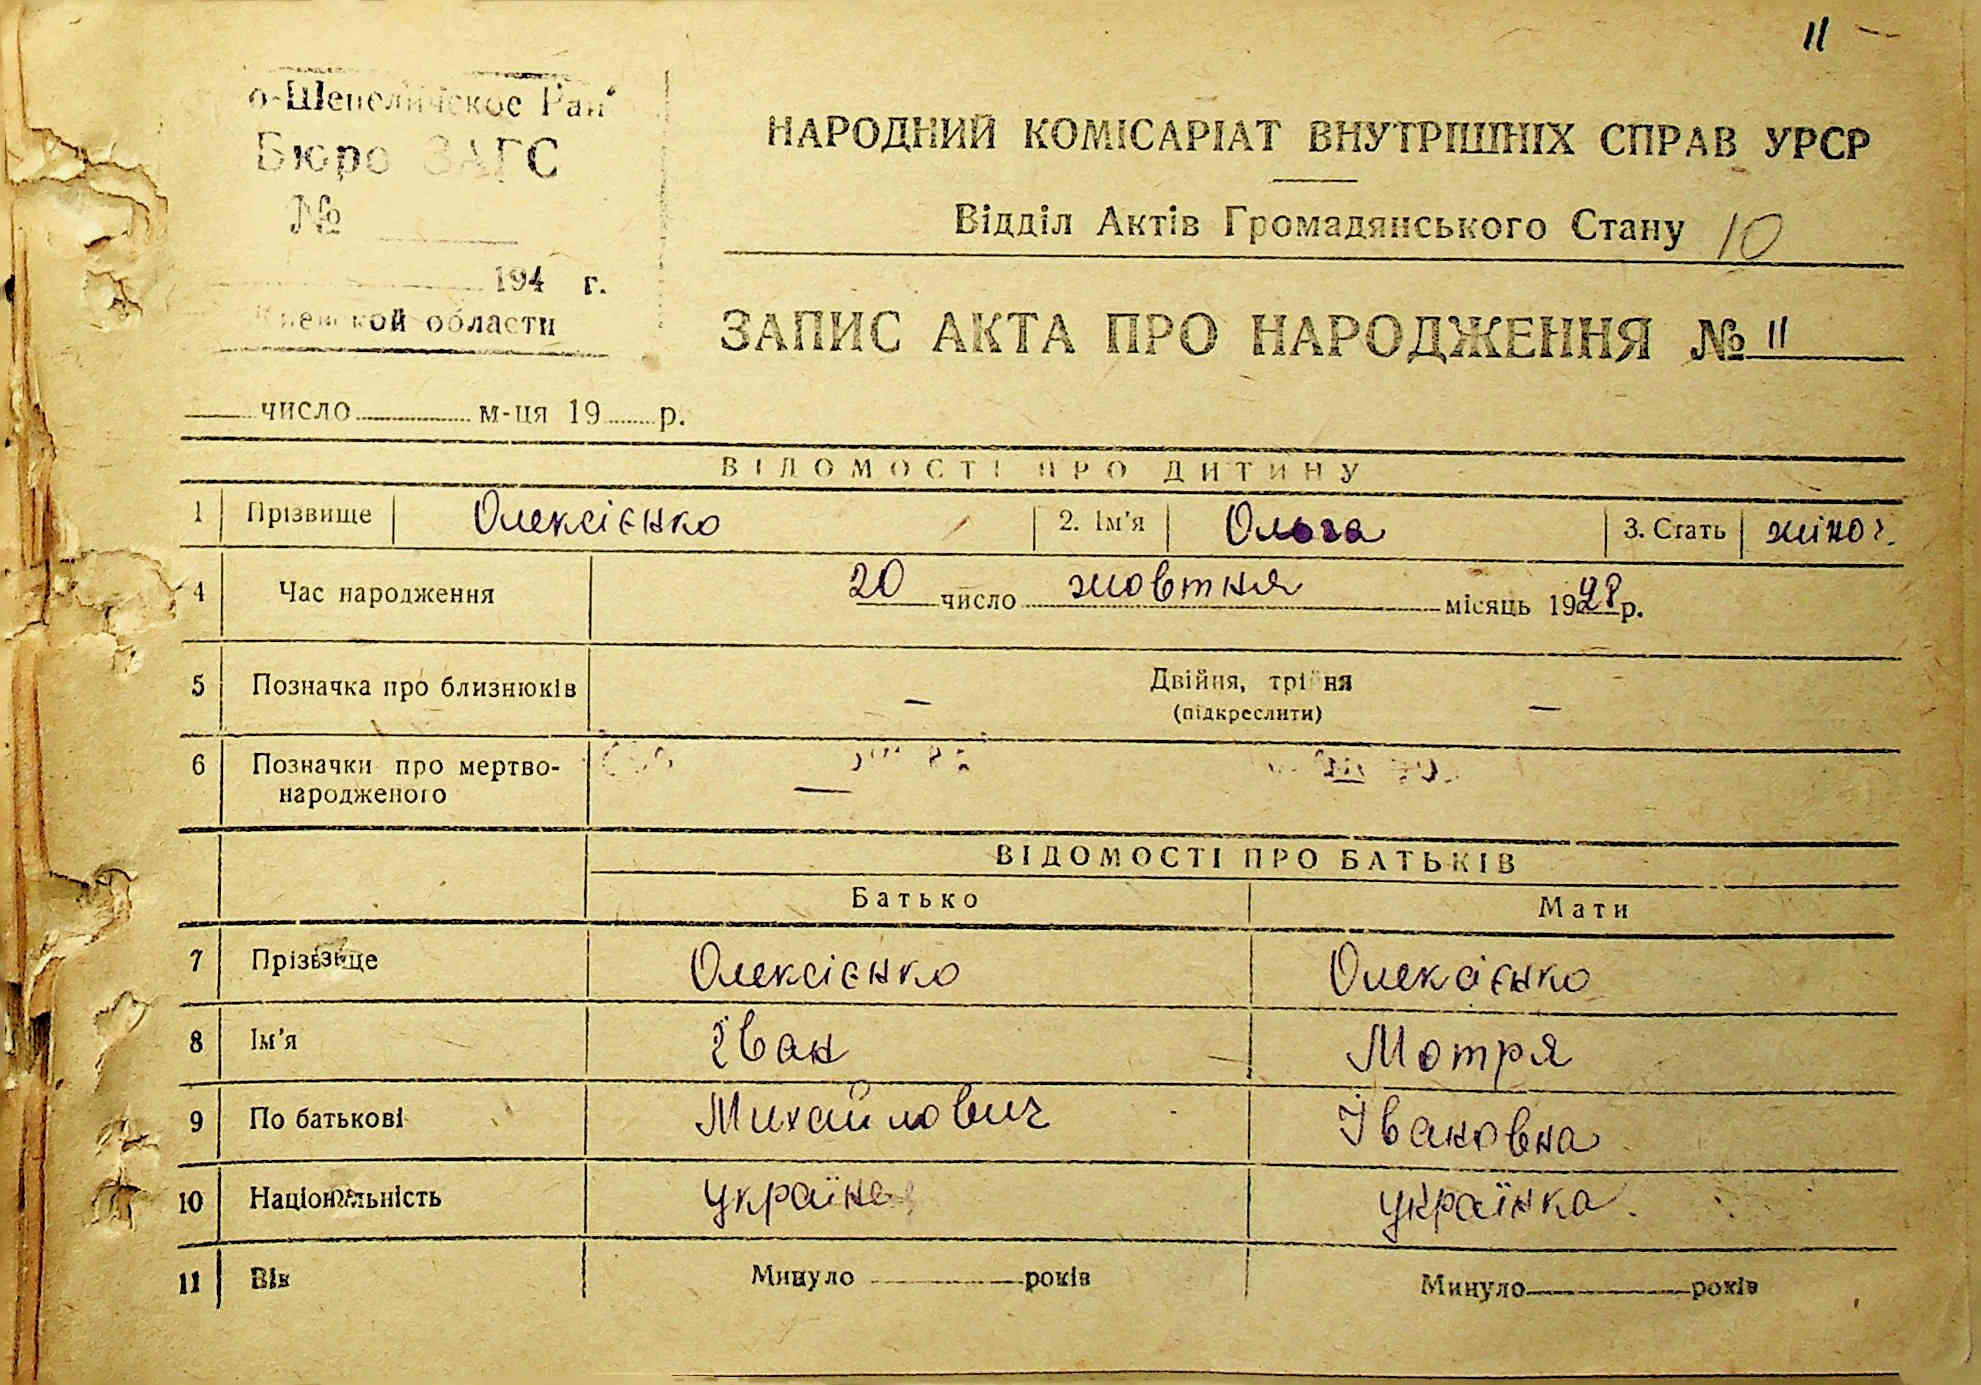 11
о-Шепеличское Рай
Бюро ЗАГС
№
194 г.
Киевской области
НАРОДНИЙ КОМІСАРІАТ ВНУТРІШНІХ СПРАВ УРСР
Відділ Актів Громадянського Стану 10
ЗАПИС АКТА ПРО НАРОДЖЕННЯ № 11
число м-ця 19 р.
ВІДОМОСТІ ПРО ДИТИНУ
1 Прізвище Олексієнко 2. Ім'я Ольга 3. Стать жіноч.
4 Час народження 20 число жовтня місяць 1928 р.
5 Позначка про близнюків — Двійня, трійня —
(підкреслити)
6 Позначки про мертво-
народженого —
ВІДОМОСТІ ПРО БАТЬКІВ
Батько Мати
7 Прізвище Олексієнко Олексієнко
8 Ім'я Іван Мотря
9 По батькові Михайлович Івановна
10 Національність українець українка.
11 Вік Минуло років Минуло років